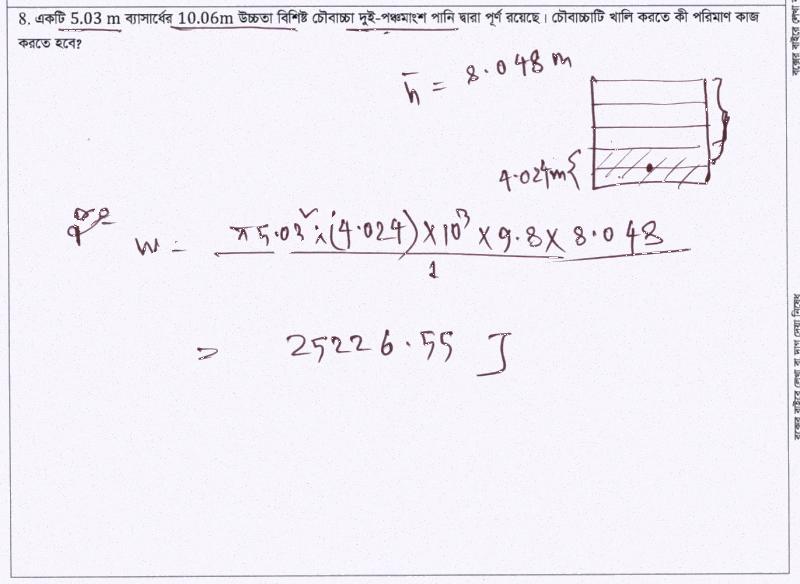 8. একটি 5.03 m ব্যাসার্ধের 10.06m উচ্চতা বিশিষ্ট চৌবাচ্চা দুই-পঞ্চমাংশ পানি দ্বারা পূর্ণ রয়েছে। চৌবাচ্চাটি খালি করতে কী পরিমাণ কাজ
করতে হবে?
h̄ = 8.048 m
4.024m{
W = π 5.03² × (4.024) × 10³ × 9.8 × 8.048
1
= 25226.55 J